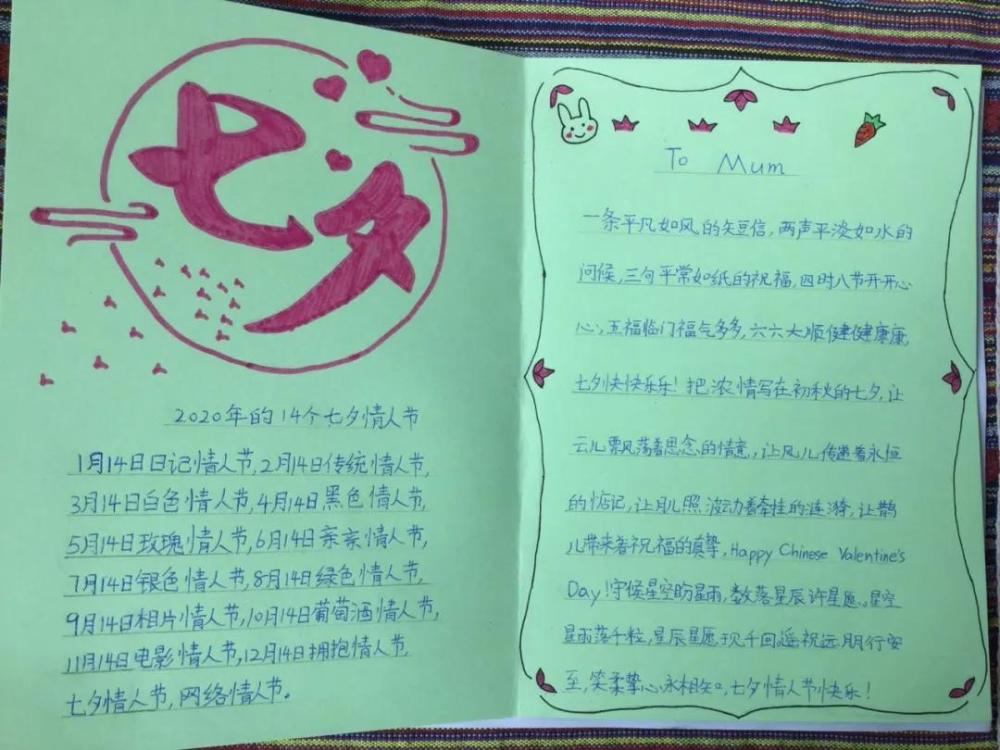 七夕
2020年的14个七夕情人节
1月14日日记情人节,2月14日传统情人节,
3月14日白色情人节,4月14日黑色情人节,
5月14日玫瑰情人节,6月14日亲亲情人节,
7月14日银色情人节,8月14日绿色情人节,
9月14日相片情人节,10月14日葡萄酒情人节,
11月14日电影情人节,12月14日拥抱情人节,
七夕情人节,网络情人节。
To Mum
一条平凡如风的短信,两声平淡如水的
问候,三句平常如纸的祝福,四时八节开开心
心,五福临门福气多多,六六大顺健健康康,
七夕快快乐乐!把浓情写在初秋的七夕,让
云儿飘荡着思念的情意,让风儿传递着永恒
的惦记,让月儿照波动着牵挂的涟漪,让鹊
儿带来着祝福的真挚,Happy Chinese Valentine's
Day!守候星空盼星雨,数落星辰许星愿。星空
星雨落千粒,星辰星愿现千回,遥祝远朋行安
至,笑柔挚心永相知,七夕情人节快乐!